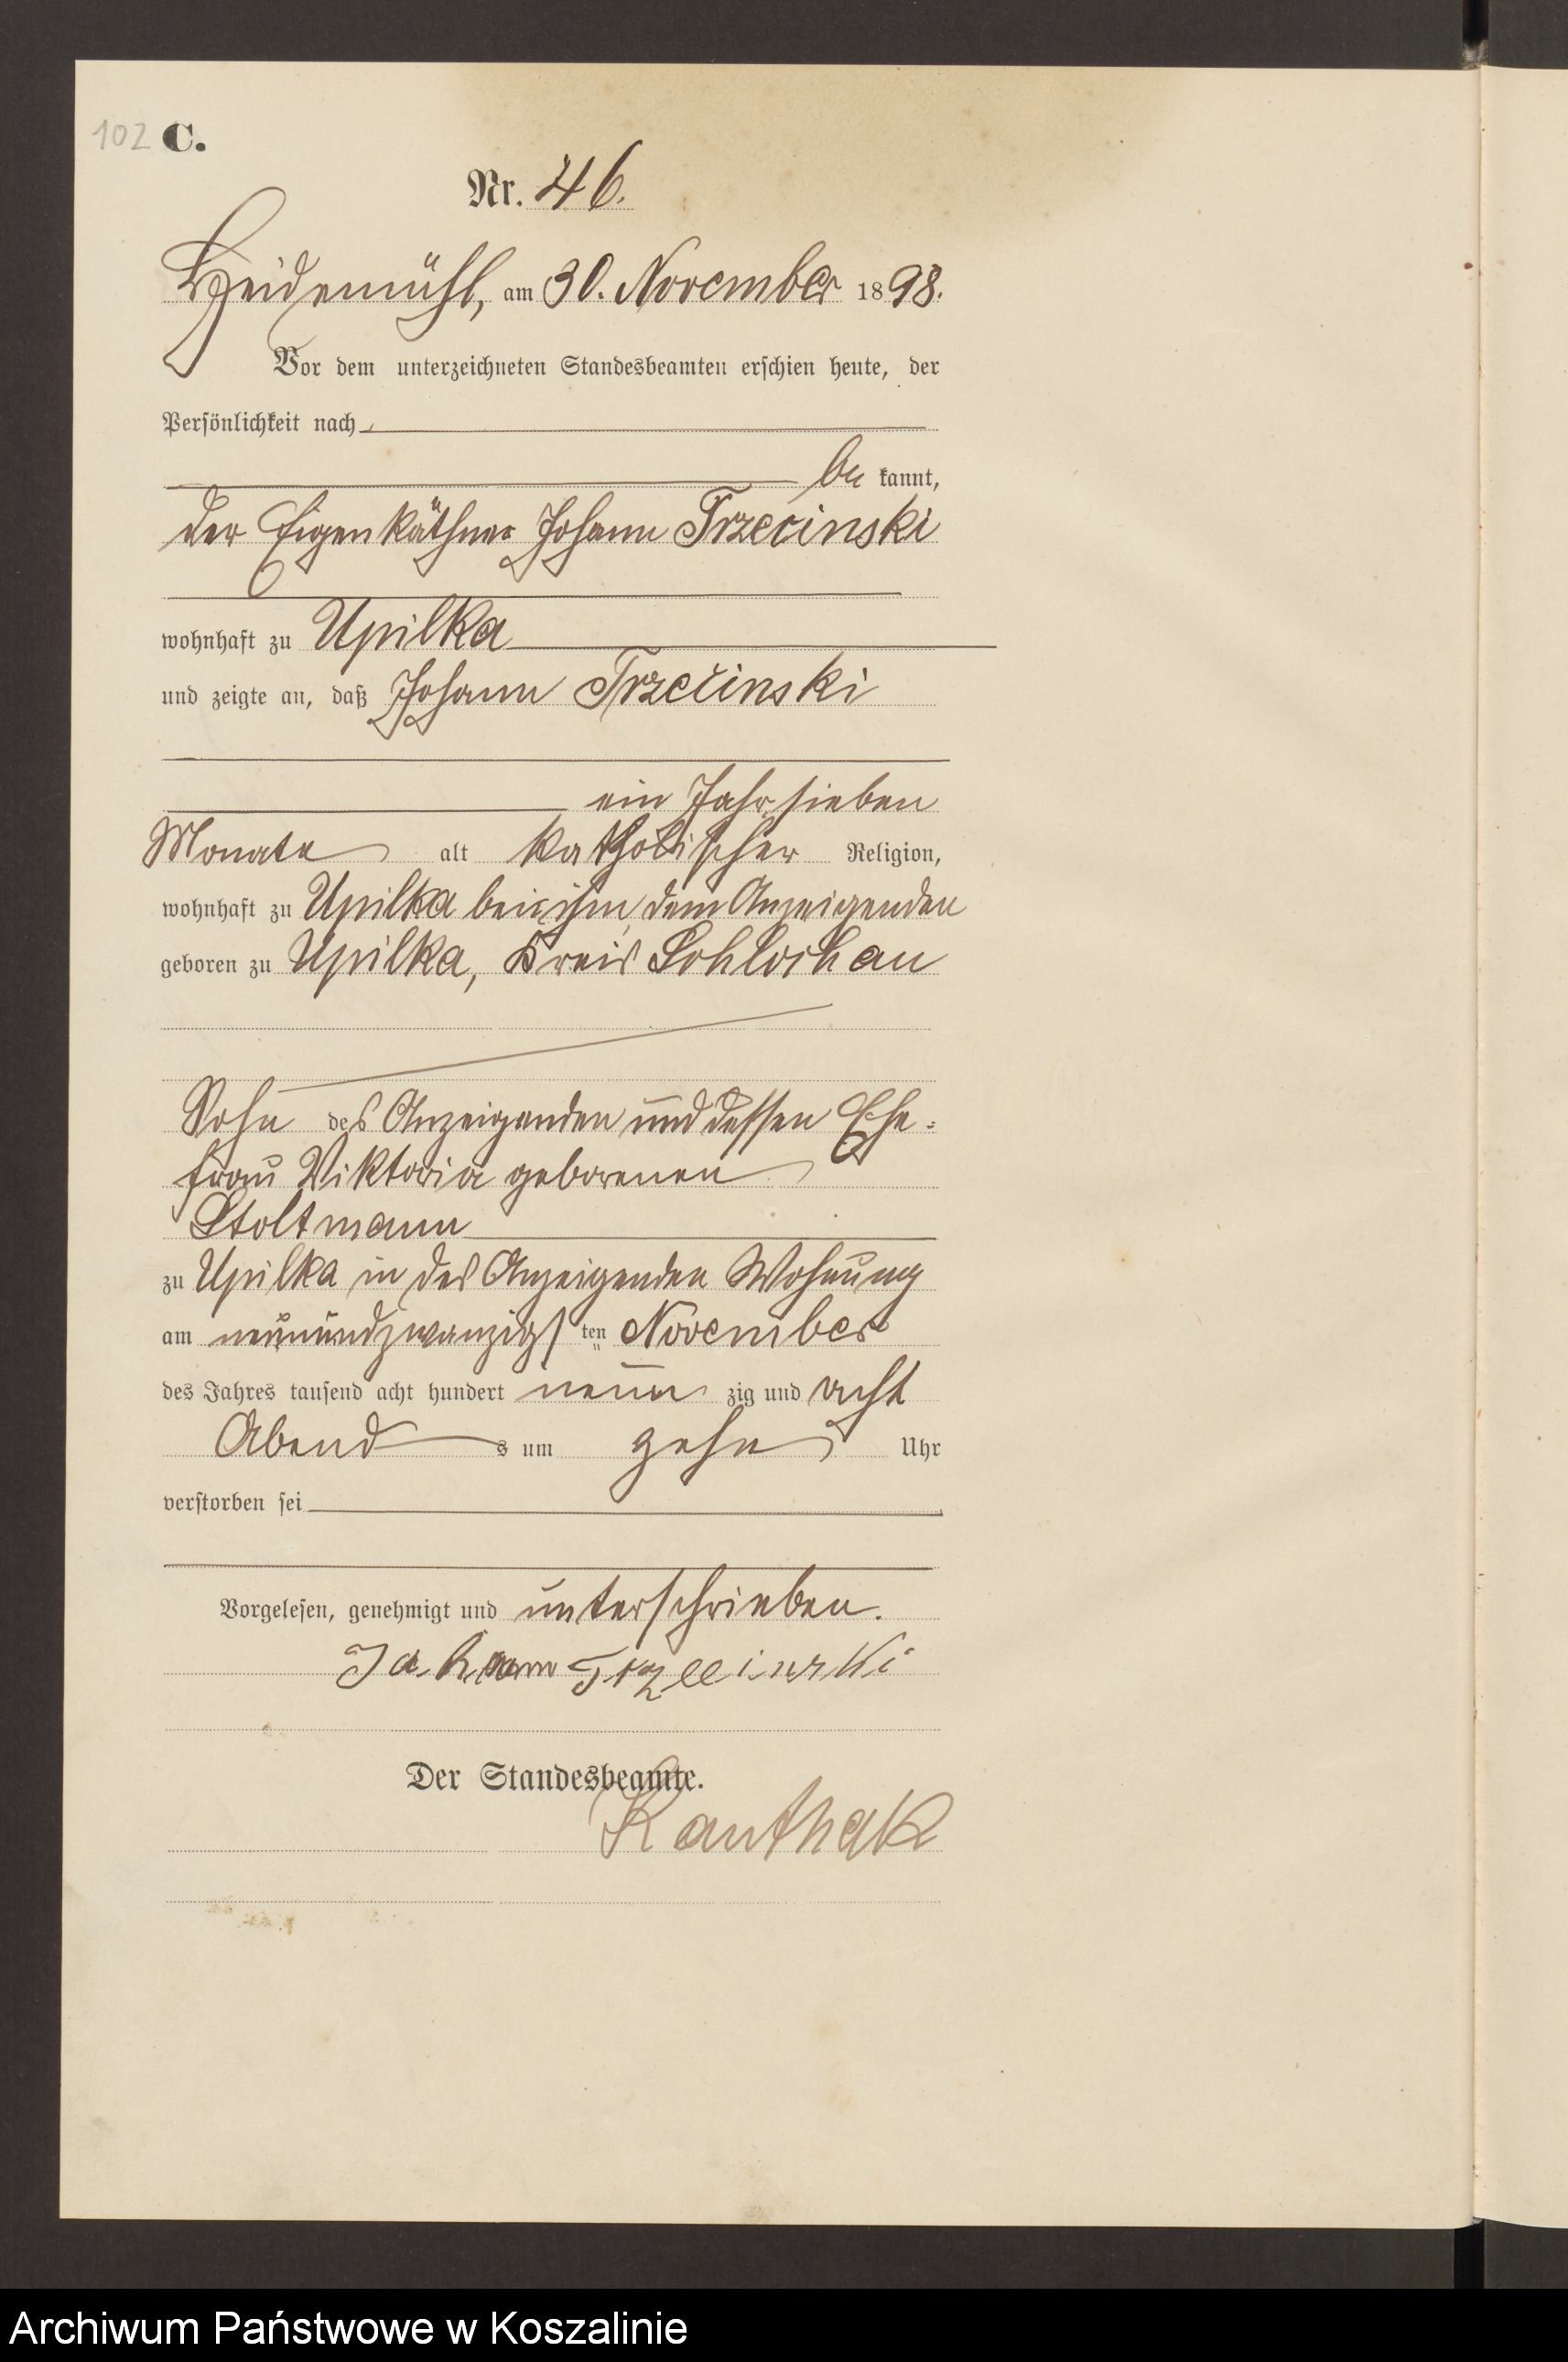 102 C.
Nr. 46.
Heidemühl, am 30. November 1898.
Vor dem unterzeichneten Standesbeamten erschien heute, der
Persönlichkeit nach
be kannt,
der Eigenkäthner Johann Trzecinski
wohnhaft zu Upilka
und zeigte an, daß Johann Trzecinski
ein Jahr sieben
Monate alt katholischer Religion,
wohnhaft zu Upilka bei ihm, dem Anzeigenden
geboren zu Upilka, Kreis Schlochau
Sohn des Anzeigenden und dessen Ehe-
frau Viktoria geborenen
Stoltmann
zu Upilka in des Anzeigenden Wohnung
am neunundzwanzigsten November
des Jahres tausend acht hundert neun zig und acht
Abend s um zehn Uhr
verstorben sei
Vorgelesen, genehmigt und unterschrieben.
Johann Trzecinski
Der Standesbeamte.
Kanthak
Archiwum Państwowe w Koszalinie